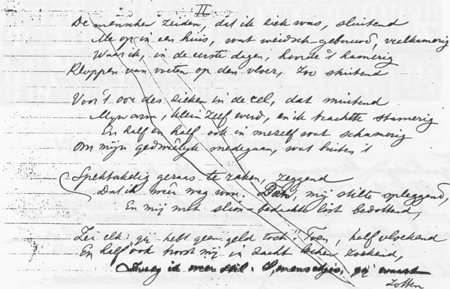 II
De menschen zeiden, dat ik ziek was, sluitend
Me op in een huis, wat weidsch gebouwd, veelkamerig
Waar ik, in de eerste dagen, hoorde 't hamerig
Kloppen van voeten op den vloer, zoo stuitend
Voor 't oor des zieken in de cel, dat muitend
Mijn arm, klein Zelf werd, en ik trachtte stamerig
En half en half ook in mezelf wat schamerig
Om mijn gedwee medegaan, wat buiten 't
Spektakelig geraas te raken, zeggend
Dat ik weg wou. Dan, mij stilte opleggend,
En mij met slim-bedachte list bedottend,
Zei elk: gij hebt geen geld toch! Toen, half vloekend
En half ook troost mij in zacht zoekend,
Zweeg ik maar stil: O, menschjes, gij waart
zotten